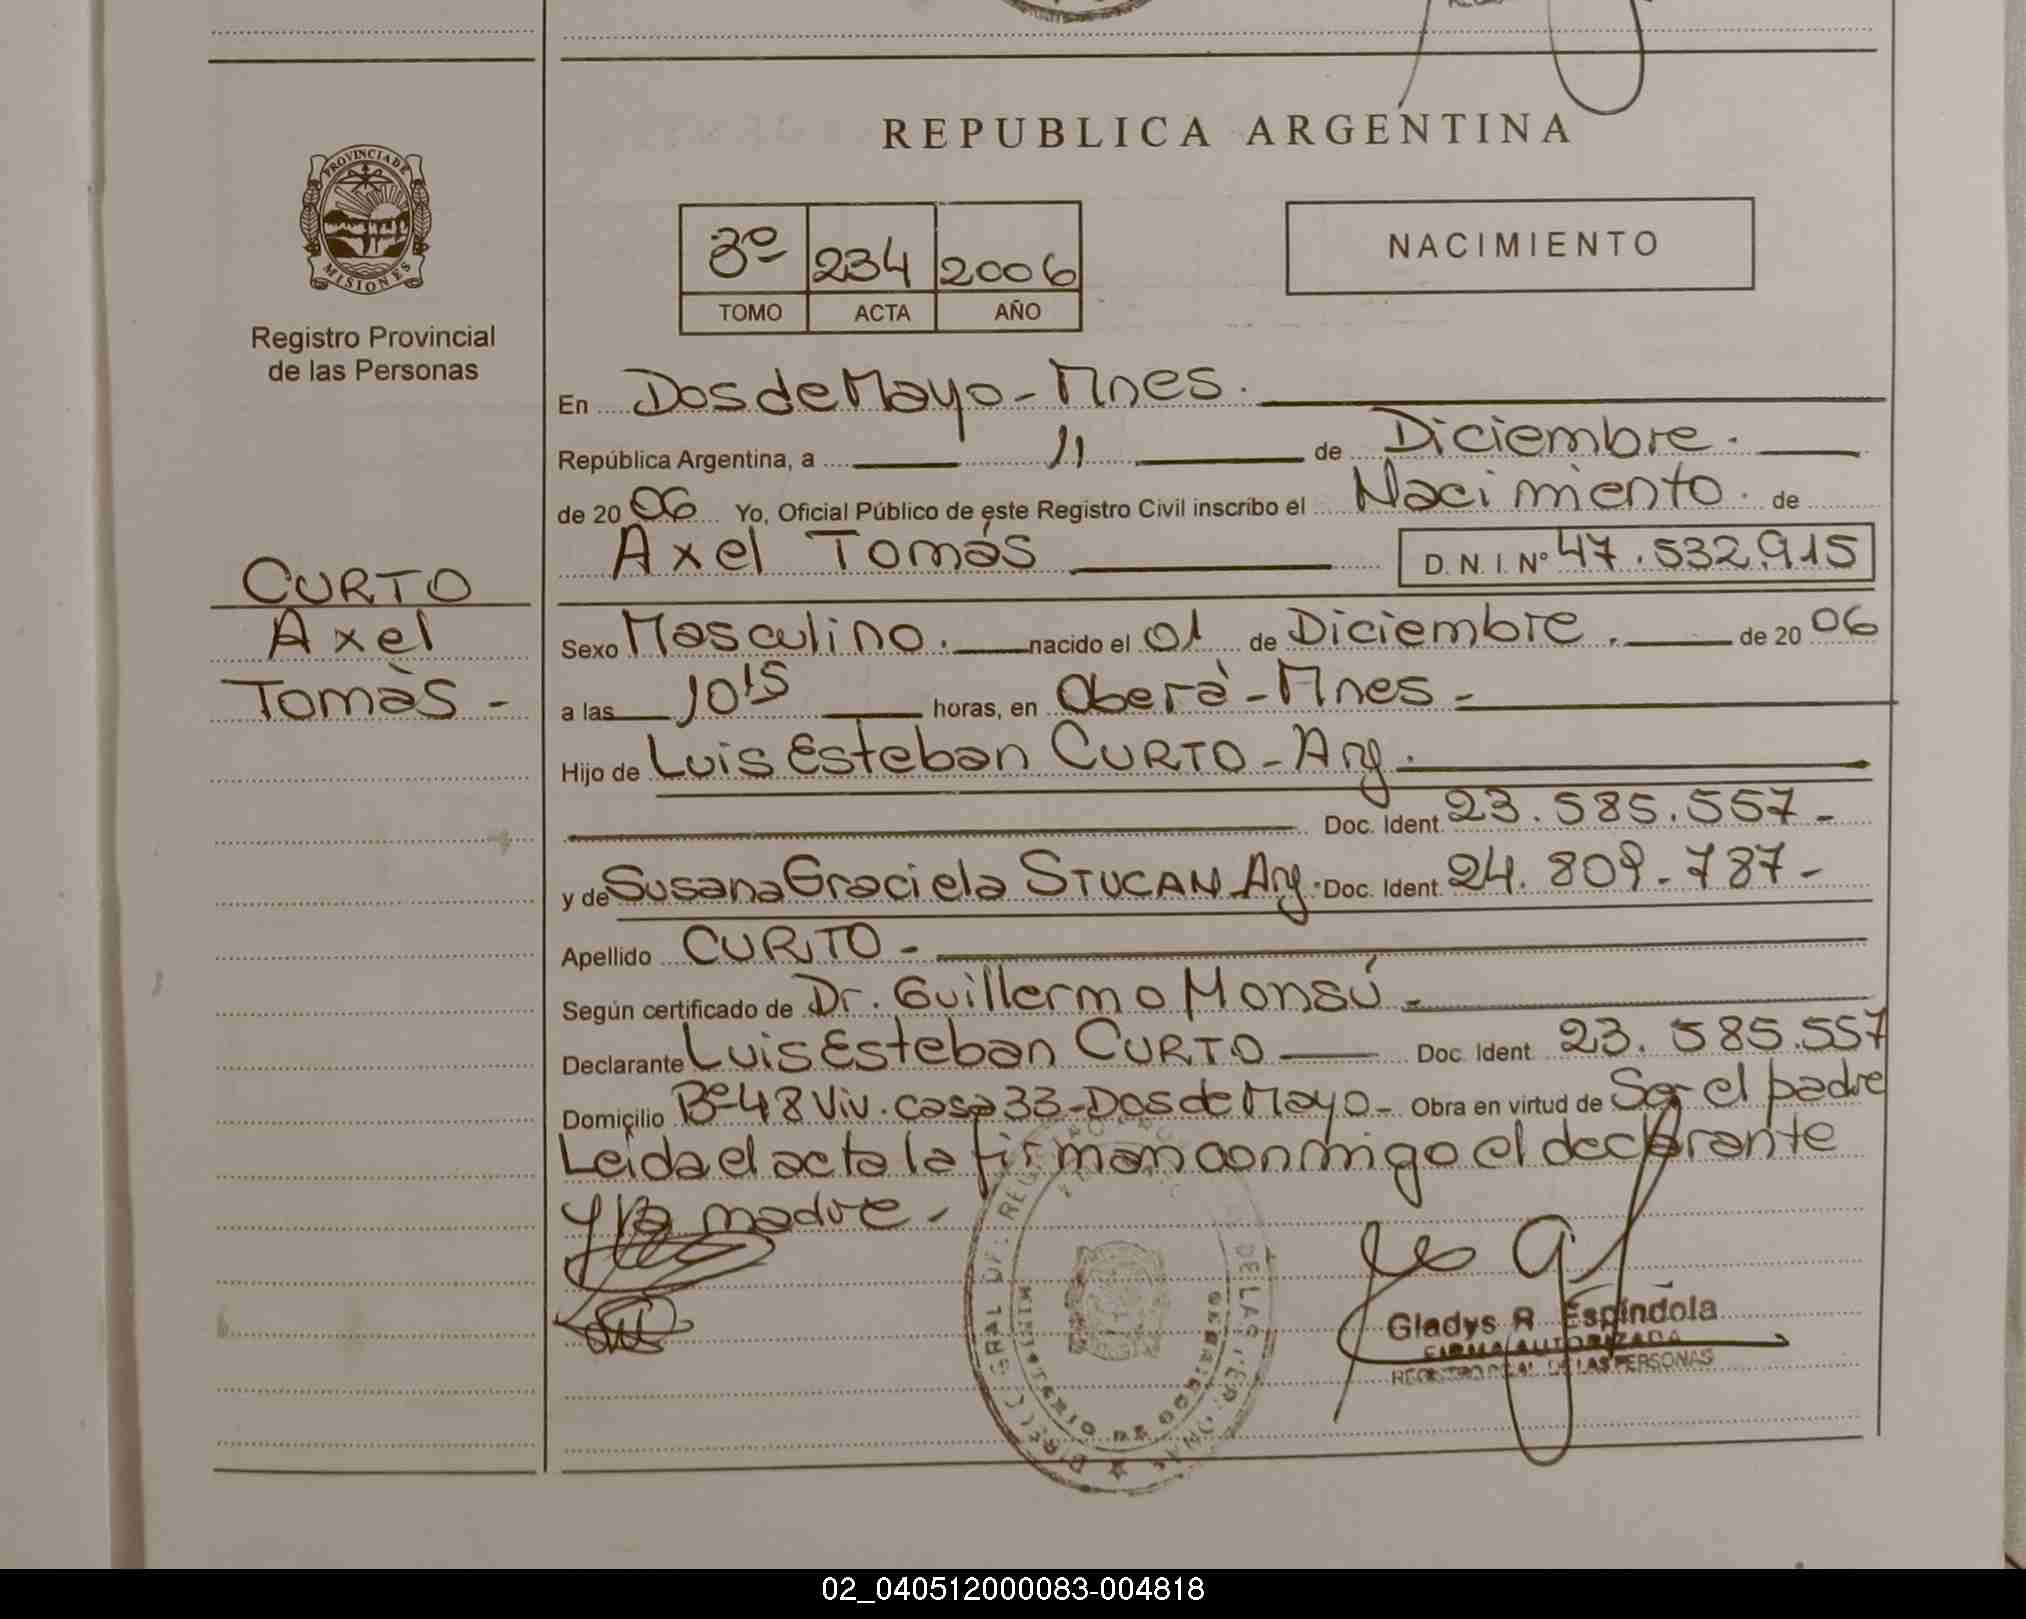 REPUBLICA ARGENTINA
PROVINCIA DE MISIONES
Registro Provincial
de las Personas
3º 234 2006
TOMO ACTA AÑO
NACIMIENTO
En Dos de Mayo - Mnes.
República Argentina, a 11 de Diciembre.
de 20 06 Yo, Oficial Público de este Registro Civil inscribo el Nacimiento. de
Axel Tomás D. N. I. Nº 47.532.915
CURTO
Axel
Tomàs -
Sexo Masculino. nacido el 01 de Diciembre. de 20 06
a las 10 15 horas, en Oberà - Mnes -
Hijo de Luis Esteban CURTO - Arg.
Doc. Ident. 23.585.557 -
y de Susana Graciela STUCAN Arg. Doc. Ident. 24.809.787 -
Apellido CURTO -
Según certificado de Dr. Guillermo Monsú -
Declarante Luis Esteban CURTO Doc. Ident. 23.585.557
Domicilio Bº 48 Viv. casa 33 - Dos de Mayo - Obra en virtud de Ser el padre
Leida el acta la firman conmigo el declarante
y la madre -
Gladys R. Espíndola
FIRMA AUTORIZADA
REGISTRO PCIAL. DE LAS PERSONAS
02_040512000083-004818